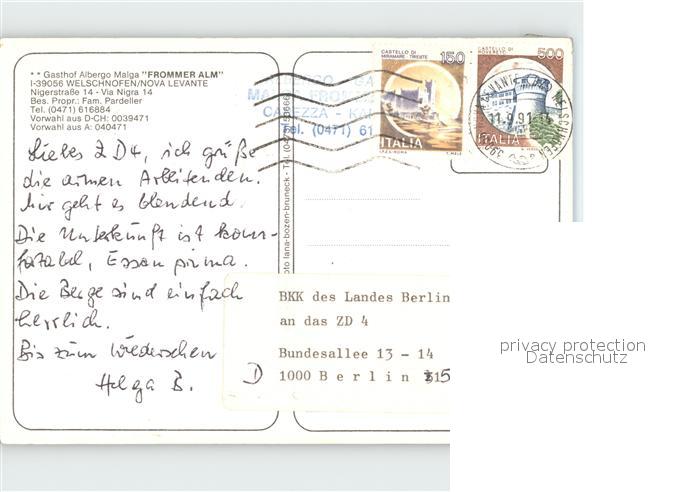 ** Gasthof Albergo Malga "FROMMER ALM"
I-39056 WELSCHNOFEN/NOVA LEVANTE
Nigerstraße 14 - Via Nigra 14
Bes. Propr.: Fam. Pardeller
Tel. (0471) 616884
Vorwahl aus D-CH: 0039471
Vorwahl aus A: 040471
Liebes ZD4, ich grüße
die armen Arbeitenden.
Mir geht es blendend.
Die Unterkunft ist kom-
fortabel, Essen prima.
Die Berge sind einfach
herrlich.
Bis zum Wiedersehen
Helga B.
CASTELLO DI
MIRAMARE · TRIESTE
150
ITALIA
CASTELLO DI
ROVERETO
500
ITALIA
11.9.91
Tel. (0471) 61
foto lana-bozen-bruneck - Tel. (0
BKK des Landes Berlin
an das ZD 4
Bundesallee 13 - 14
D 1000 Berlin 15
privacy protection
Datenschutz